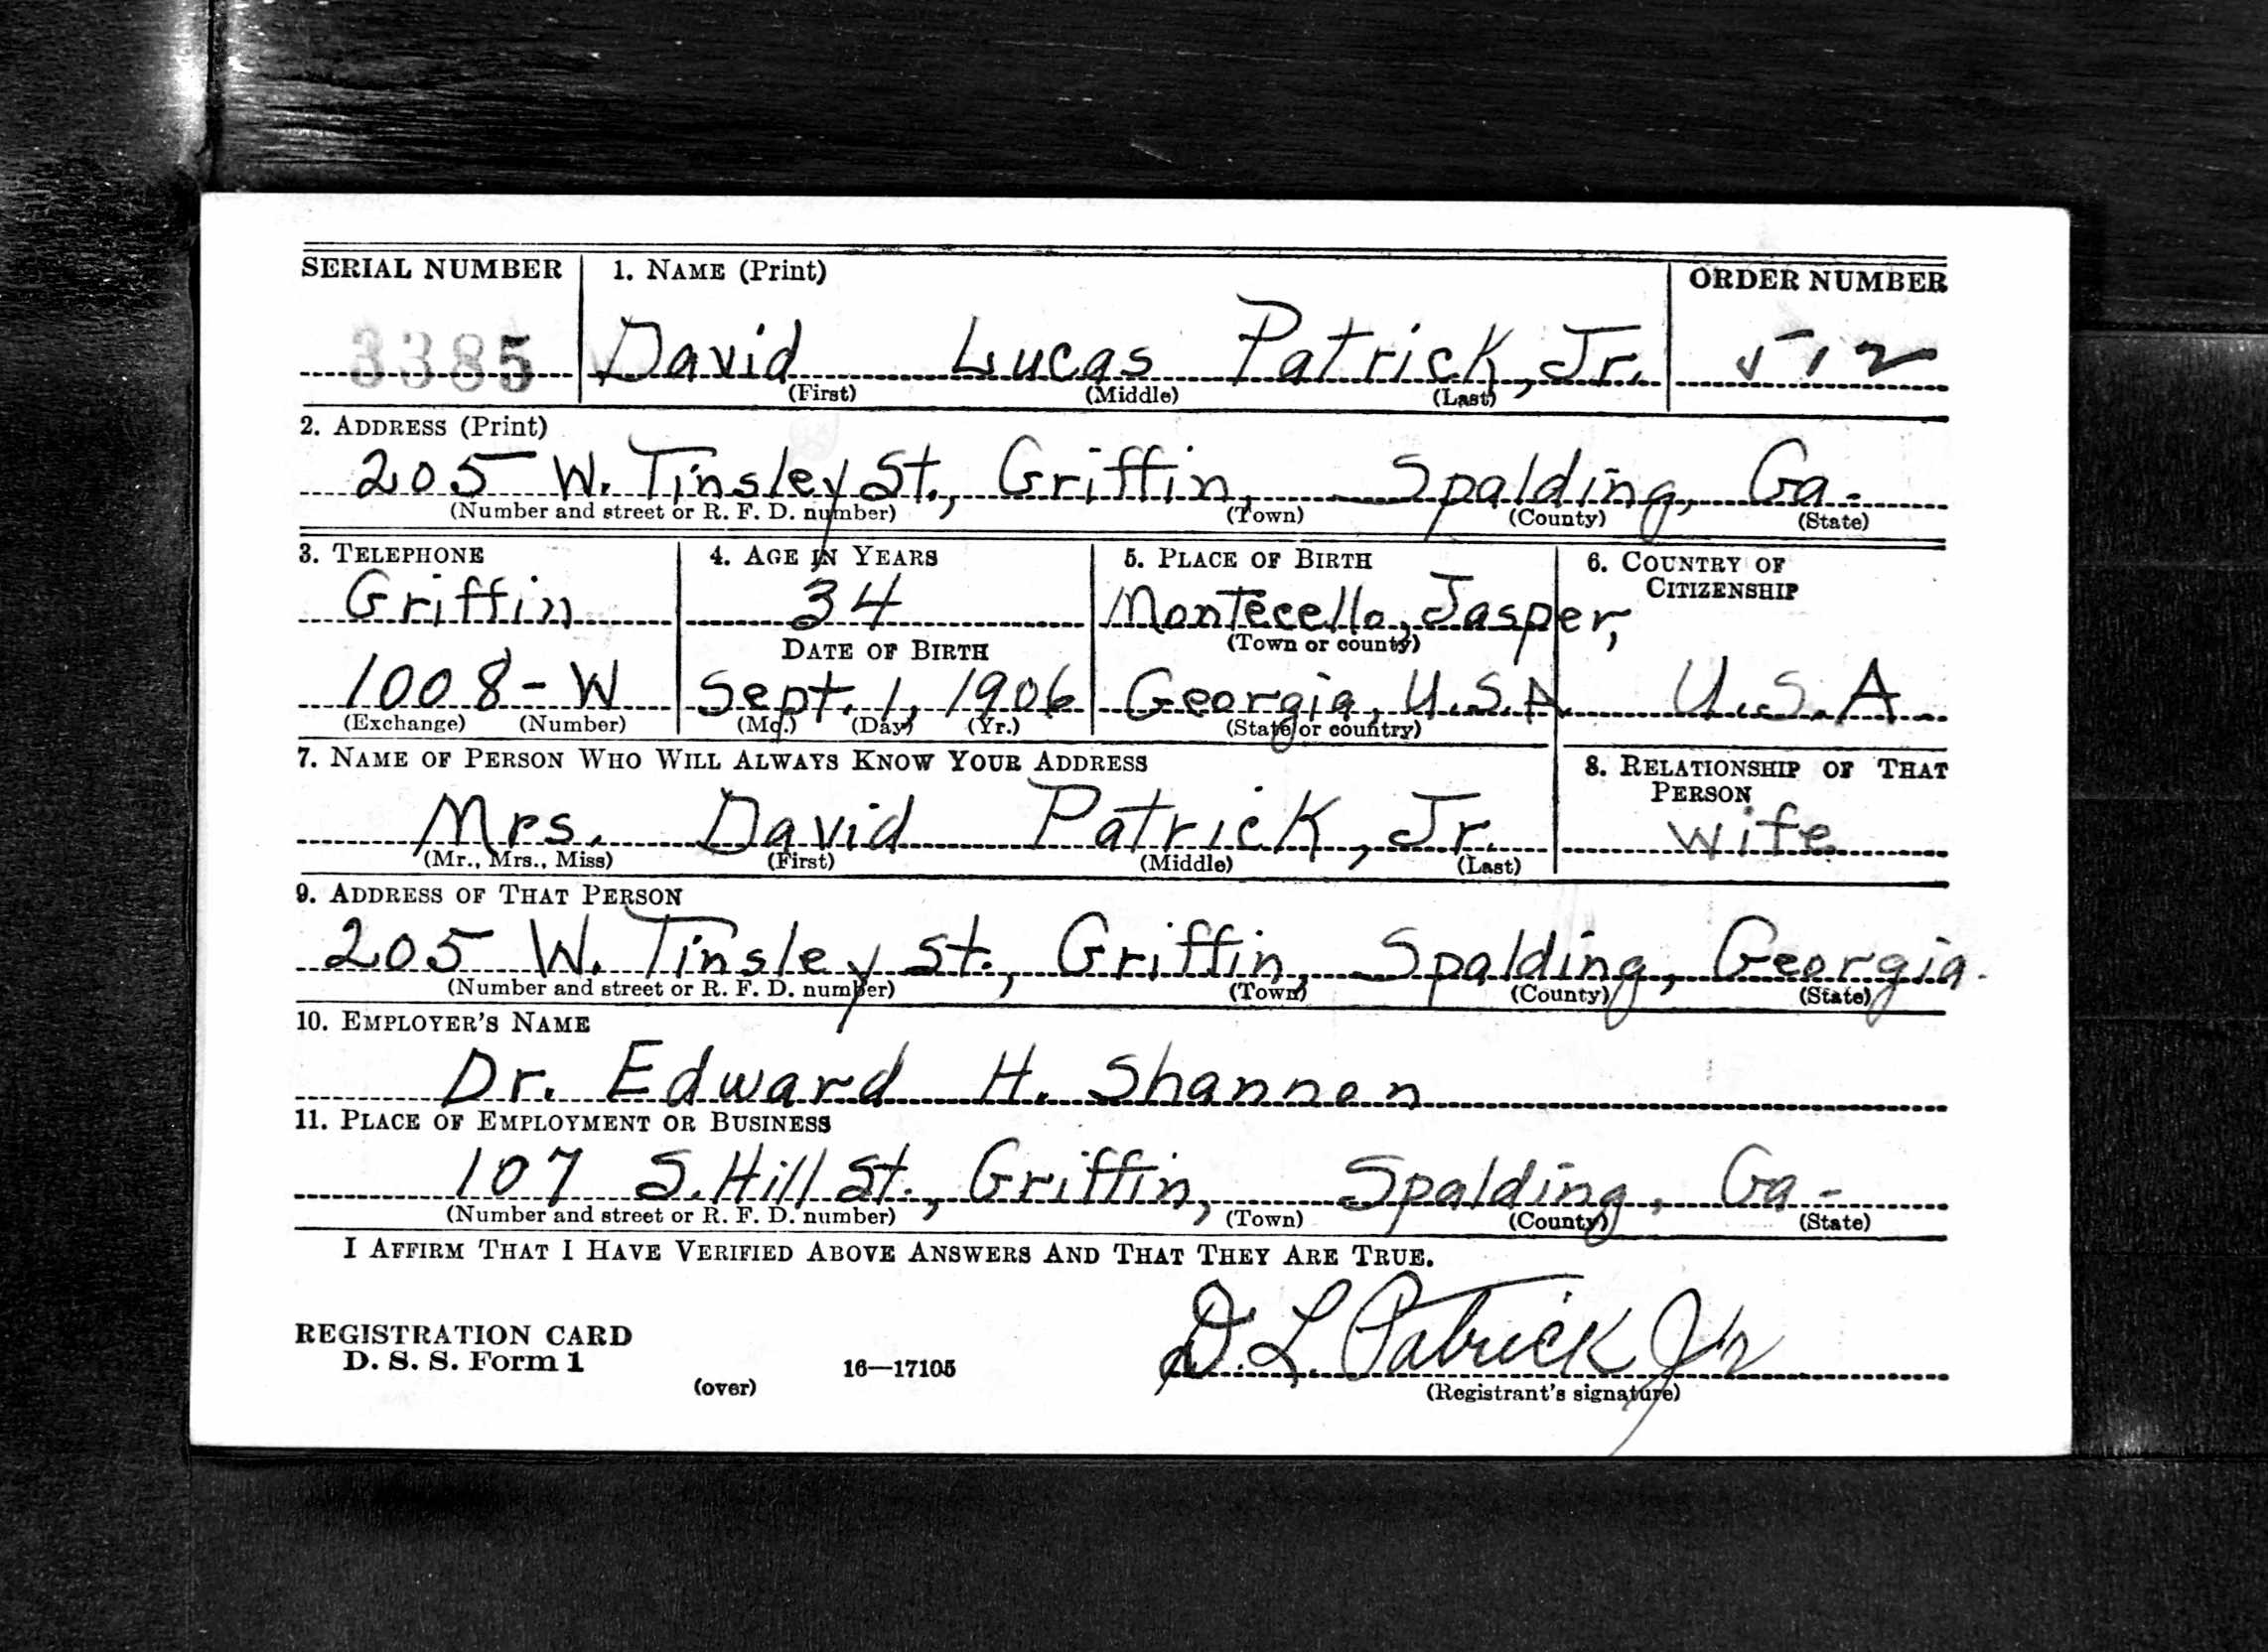 SERIAL NUMBER 1. NAME (Print) ORDER NUMBER
3385 David Lucas Patrick, Jr. 512
(First) (Middle) (Last)
2. ADDRESS (Print)
205 W. Tinsley St., Griffin, Spalding, Ga.
(Number and street or R. F. D. number) (Town) (County) (State)
3. TELEPHONE 4. AGE IN YEARS 5. PLACE OF BIRTH 6. COUNTRY OF CITIZENSHIP
Griffin 34 Montecello, Jasper,
DATE OF BIRTH (Town or county)
1008-W Sept. 1, 1906 Georgia, U.S.A U.S.A.
(Exchange) (Number) (Mo.) (Day) (Yr.) (State or country)
7. NAME OF PERSON WHO WILL ALWAYS KNOW YOUR ADDRESS 8. RELATIONSHIP OF THAT PERSON
Mrs. David Patrick, Jr. wife
(Mr., Mrs., Miss) (First) (Middle) (Last)
9. ADDRESS OF THAT PERSON
205 W. Tinsley St., Griffin, Spalding, Georgia.
(Number and street or R. F. D. number) (Town) (County) (State)
10. EMPLOYER'S NAME
Dr. Edward H. Shannon
11. PLACE OF EMPLOYMENT OR BUSINESS
107 S. Hill St., Griffin, Spalding, Ga-
(Number and street or R. F. D. number) (Town) (County) (State)
I AFFIRM THAT I HAVE VERIFIED ABOVE ANSWERS AND THAT THEY ARE TRUE.
REGISTRATION CARD
D. S. S. Form 1 16—17105 D. L. Patrick Jr
(over) (Registrant's signature)